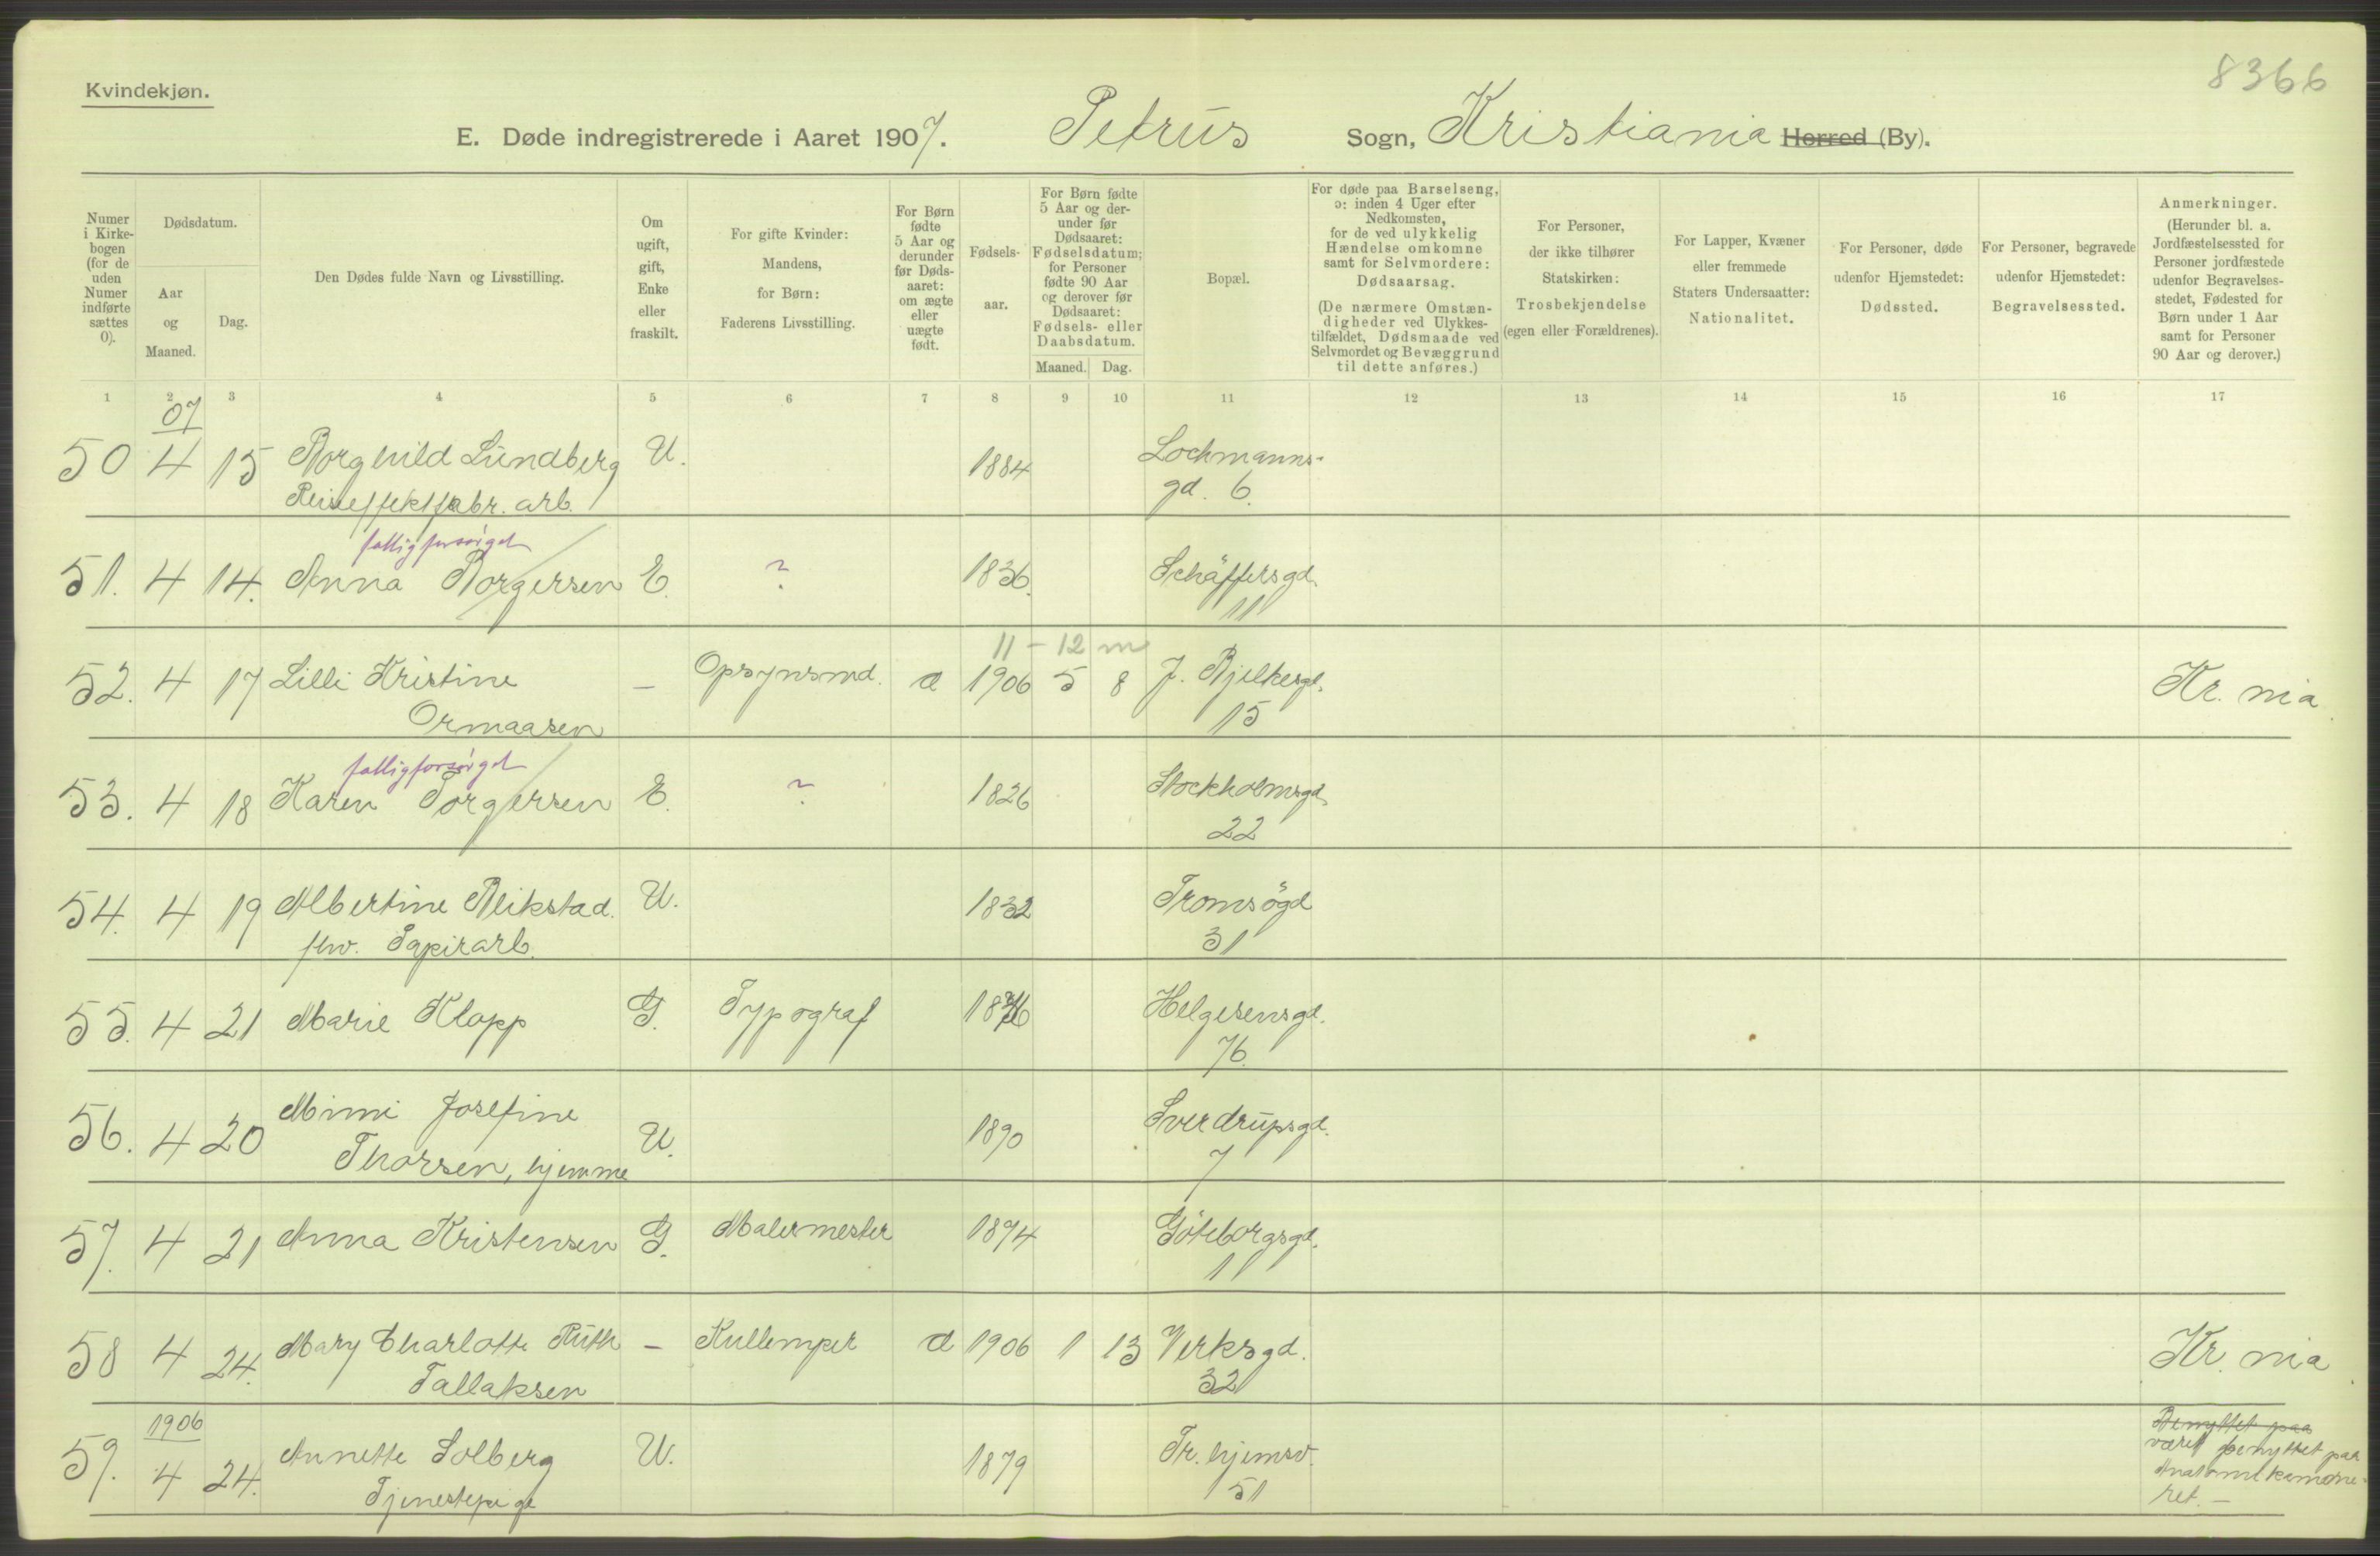 8366
Kvindekjøn.
E. Døde indregistrerede i Aaret 1907. Petrus Sogn, Kristiania Herred (By).
Numer i Kirke-bogen (for de uden Numer indførte sættes 0).
Dødsdatum.
Aar og Maaned.
Dag.
Den Dødes fulde Navn og Livsstilling.
Om ugift, gift, Enke eller fraskilt.
For gifte Kvinder: Mandens, for Børn: Faderens Livsstilling.
For Børn fødte 5 Aar og derunder før Døds-aaret: om ægte eller uægte født.
Fødsels-aar.
For Børn fødte 5 Aar og der-under før Dødsaaret: Fødselsdatum; for Personer fødte 90 Aar og derover før Dødsaaret: Fødsels- eller Daabsdatum.
Maaned. Dag.
Bopæl.
For døde paa Barselseng, ɔ: inden 4 Uger efter Nedkomsten, for de ved ulykkelig Hændelse omkomne samt for Selvmordere: Dødsaarsag.
(De nærmere Omstæn-digheder ved Ulykkes-tilfældet, Dødsmaade ved Selvmordet og Bevæggrund til dette anføres.)
For Personer, der ikke tilhører Statskirken: Trosbekjendelse (egen eller Forældrenes).
For Lapper, Kvæner eller fremmede Staters Undersaatter: Nationalitet.
For Personer, døde udenfor Hjemstedet: Dødssted.
For Personer, begravede udenfor Hjemstedet: Begravelsessted.
Anmerkninger. (Herunder bl. a. Jordfæstelsessted for Personer jordfæstede udenfor Begravelses-stedet, Fødested for Børn under 1 Aar samt for Personer 90 Aar og derover.)
1 2 3 4 5 6 7 8 9 10 11 12 13 14 15 16 17
07
50 4 15 Borghild Lundberg U. 1884 Lochmanns-
Reiseffektfabr. arb. gd. 6.
fattigforsørget
51. 4 14. Anna Borgersen E. ? 1836. Schäffersgd.
11
11 - 12 m
52. 4 17 Lilli Kristine - Opsynsmd. æ 1906 5 8 J. Bjelkesgd. Kr.nia
Ormaasen 15
fattigforsørget
53. 4 18 Karen Torgersen E. ? 1826 Stockholmsgd.
22
54. 4 19 Albertine Reikstad. U. 1832 Tromsögd
fhv. Papirarb. 31
55. 4 21 Marie Klopp G. Typograf Helgesensgd.
76.
56. 4 20 Mimi Josefine U. 1890 Sverdrupsgd.
Thorsen, hjemme 7
57. 4 21 Anna Kristensen G. Malermester 1874 Göteborgsgd.
11
58 4 24. Mary Charlotte Ruth - Kullemper æ 1906 1 13 Verksgd. Kr.nia
Tallaksen 32
1906
59. 4 24. Annette Solberg U. 1879 Tr.hjemsv.
Tjenestepige 51
Benyttet paa
været benyttet paa
Anatomikamme-
ret. -